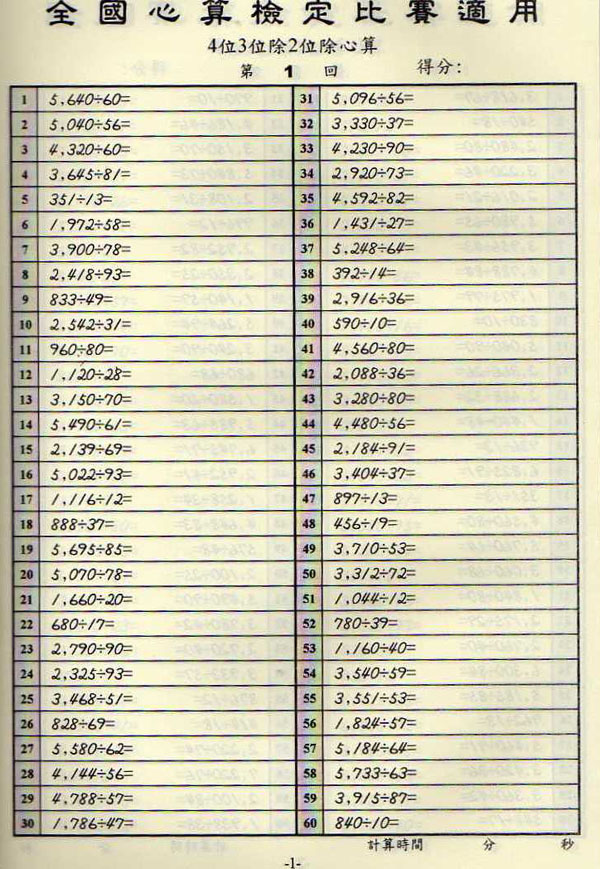 全國心算檢定比賽適用
4位3位除2位除心算
第 1 回 得分:
1 5,640÷60=
2 5,040÷56=
3 4,320÷60=
4 3,645÷81=
5 351÷13=
6 1,972÷58=
7 3,900÷78=
8 2,418÷93=
9 833÷49=
10 2,542÷31=
11 960÷80=
12 1,120÷28=
13 3,150÷70=
14 5,490÷61=
15 2,139÷69=
16 5,022÷93=
17 1,116÷12=
18 888÷37=
19 5,695÷85=
20 5,070÷78=
21 1,660÷20=
22 680÷17=
23 2,790÷90=
24 2,325÷93=
25 3,468÷51=
26 828÷69=
27 5,580÷62=
28 4,144÷56=
29 4,788÷57=
30 1,786÷47=
31 5,096÷56=
32 3,330÷37=
33 4,230÷90=
34 2,920÷73=
35 4,592÷82=
36 1,431÷27=
37 5,248÷64=
38 392÷14=
39 2,916÷36=
40 590÷10=
41 4,560÷80=
42 2,088÷36=
43 3,280÷80=
44 4,480÷56=
45 2,184÷91=
46 3,404÷37=
47 897÷13=
48 456÷19=
49 3,710÷53=
50 3,312÷72=
51 1,044÷12=
52 780÷39=
53 1,160÷40=
54 3,540÷59=
55 3,551÷53=
56 1,824÷57=
57 5,184÷64=
58 5,733÷63=
59 3,915÷87=
60 840÷10=
計算時間 分 秒
-1-